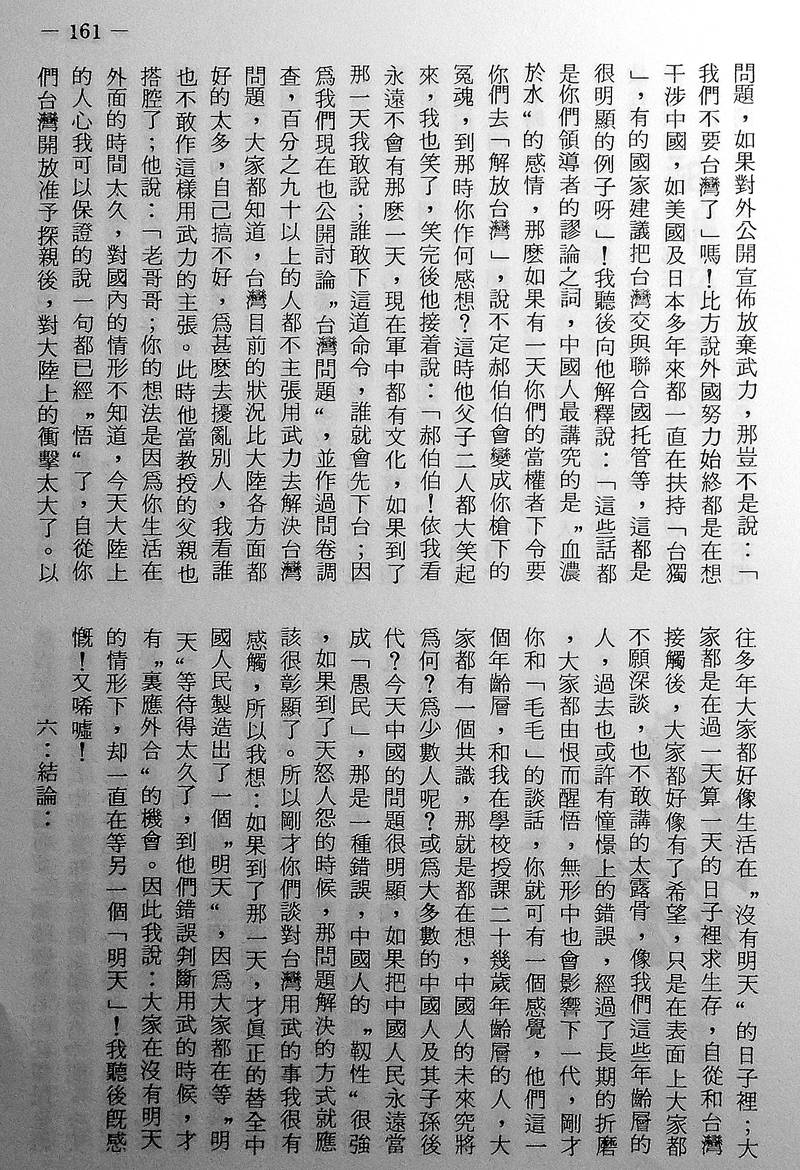 — 161 —
問題，如果對外公開宣佈放棄武力，那豈不是說：「
我們不要台灣了」嗎！比方說外國努力始終都是在想
干涉中國，如美國及日本多年來都一直在扶持「台獨
」，有的國家建議把台灣交與聯合國托管等，這都是
很明顯的例子呀」！我聽後向他解釋說：「這些話都
是你們領導者的謬論之詞，中國人最講究的是〞血濃
於水〝的感情，那麼如果有一天你們的當權者下令要
你們去「解放台灣」，說不定郝伯伯會變成你槍下的
冤魂，到那時你作何感想？這時他父子二人都大笑起
來，我也笑了，笑完後他接着說：「郝伯伯！依我看
永遠不會有那麼一天，現在軍中都有文化，如果到了
那一天我敢說；誰敢下這道命令，誰就會先下台；因
爲我們現在也公開討論〞台灣問題〝，並作過問卷調
查，百分之九十以上的人都不主張用武力去解決台灣
問題，大家都知道，台灣目前的狀況比大陸各方面都
好的太多，自己搞不好，爲甚麼去擾亂別人，我看誰
也不敢作這樣用武力的主張。此時他當教授的父親也
搭腔了；他說：「老哥哥；你的想法是因爲你生活在
外面的時間太久，對國內的情形不知道，今天大陸上
的人心我可以保證的說一句都已經〞悟〝了，自從你
們台灣開放准予探親後，對大陸上的衝擊太大了。以
往多年大家都好像生活在〞沒有明天〝的日子裡；大
家都是在過一天算一天的日子裡求生存，自從和台灣
接觸後，大家都好像有了希望，只是在表面上大家都
不願深談，也不敢講的太露骨，像我們這些年齡層的
人，過去也或許有憧憬上的錯誤，經過了長期的折磨
，大家都由恨而醒悟，無形中也會影響下一代，剛才
你和「毛毛」的談話，你就可有一個感覺，他們這一
個年齡層，和我在學校授課二十幾歲年齡層的人，大
家都有一個共識，那就是都在想，中國人的未來究將
爲何？爲少數人呢？或爲大多數的中國人及其子孫後
代？今天中國的問題很明顯，如果把中國人民永遠當
成「愚民」，那是一種錯誤，中國人的〞韌性〝很強
，如果到了天怒人怨的時候，那問題解決的方式就應
該很彰顯了。所以剛才你們談對台灣用武的事我很有
感觸，所以我想：如果到了那一天，才眞正的替全中
國人民製造出了一個〞明天〝，因爲大家都在等〞明
天〝等待得太久了，到他們錯誤判斷用武的時候，才
有〞裏應外合〝的機會。因此我說：大家在沒有明天
的情形下，却一直在等另一個「明天」！我聽後旣感
慨！又唏噓！
六：結論：